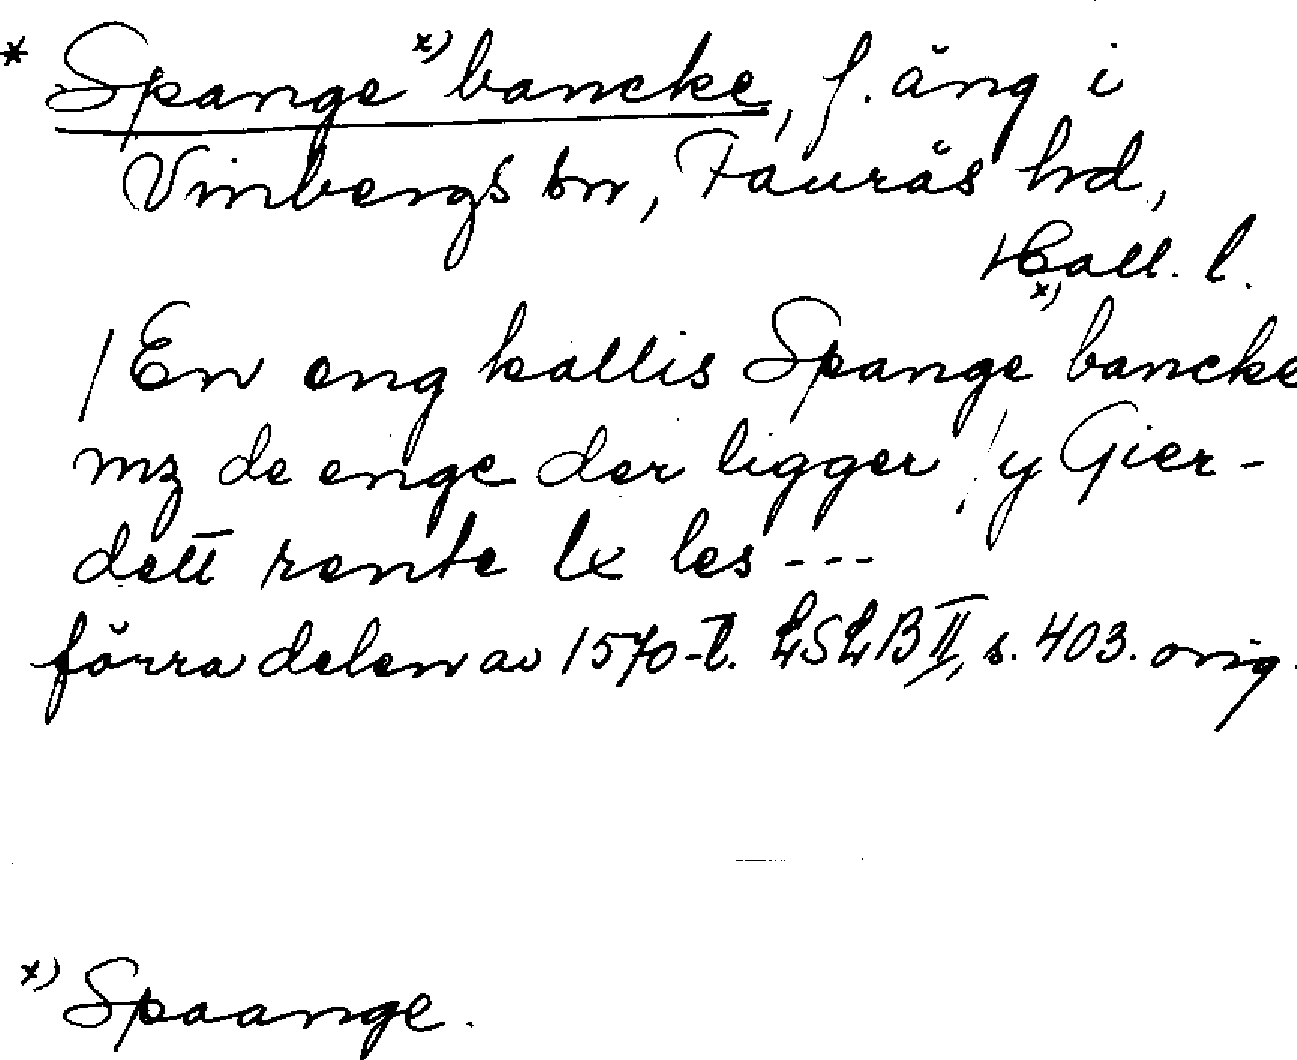 * Spange x) bancke, f. äng i
Vinbergs sn, Faurås hd,
Hall. l.
/ En eng kallis Spange x) bancke
mz de enge der ligger / y Gier-
dett rente lx les ---
förra delen av 1570-t. LSLB II, s. 403. orig.
x) Spaange.